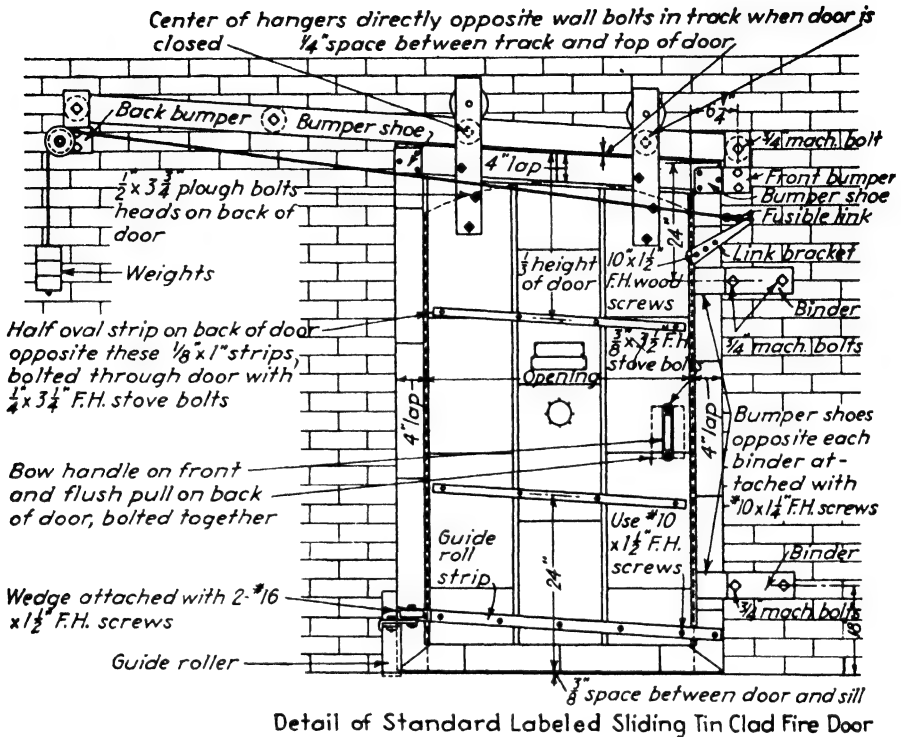 Center of hangers directly opposite wall bolts in track when door is
closed
1/4" space between track and top of door
6 1/4"
Back bumper
Bumper shoe
4" lap
3/4" mach. bolt
Front bumper
Bumper shoe
Fusible link
1/2" x 3 3/4" plough bolts
heads on back of
door
24"
Link bracket
Weights
1/3 height
of door
10" x 1 1/2"
F.H. wood
screws
Binder
3/4" mach. bolts
Half oval strip on back of door
opposite these 1/8" x 1" strips,
bolted through door with
1/4" x 3 1/4" F.H. stove bolts
3/8" x 3 1/2" F.H.
stove bolts
Opening
4" lap
4" lap
Bumper shoes
opposite each
binder at-
tached with
#10 x 1 1/4" F.H. screws
Bow handle on front
and flush pull on back
of door, bolted together
Guide
roll
strip
24"
Use #10
x 1 1/2" F.H.
screws
Binder
Wedge attached with 2-#16
x 1 1/2" F.H. screws
3/4" mach. bolts
18"
Guide roller
3/8" space between door and sill
Detail of Standard Labeled Sliding Tin Clad Fire Door